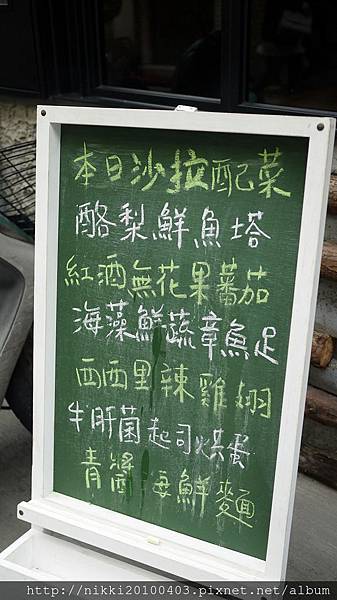 本日沙拉配菜
酪梨鮮魚塔
紅酒無花果蕃茄
海藻鮮蔬章魚足
西西里辣雞翅
牛肝菌起司烘蛋
青醬海鮮麵
http://nikki20100403.pixnet.net/album